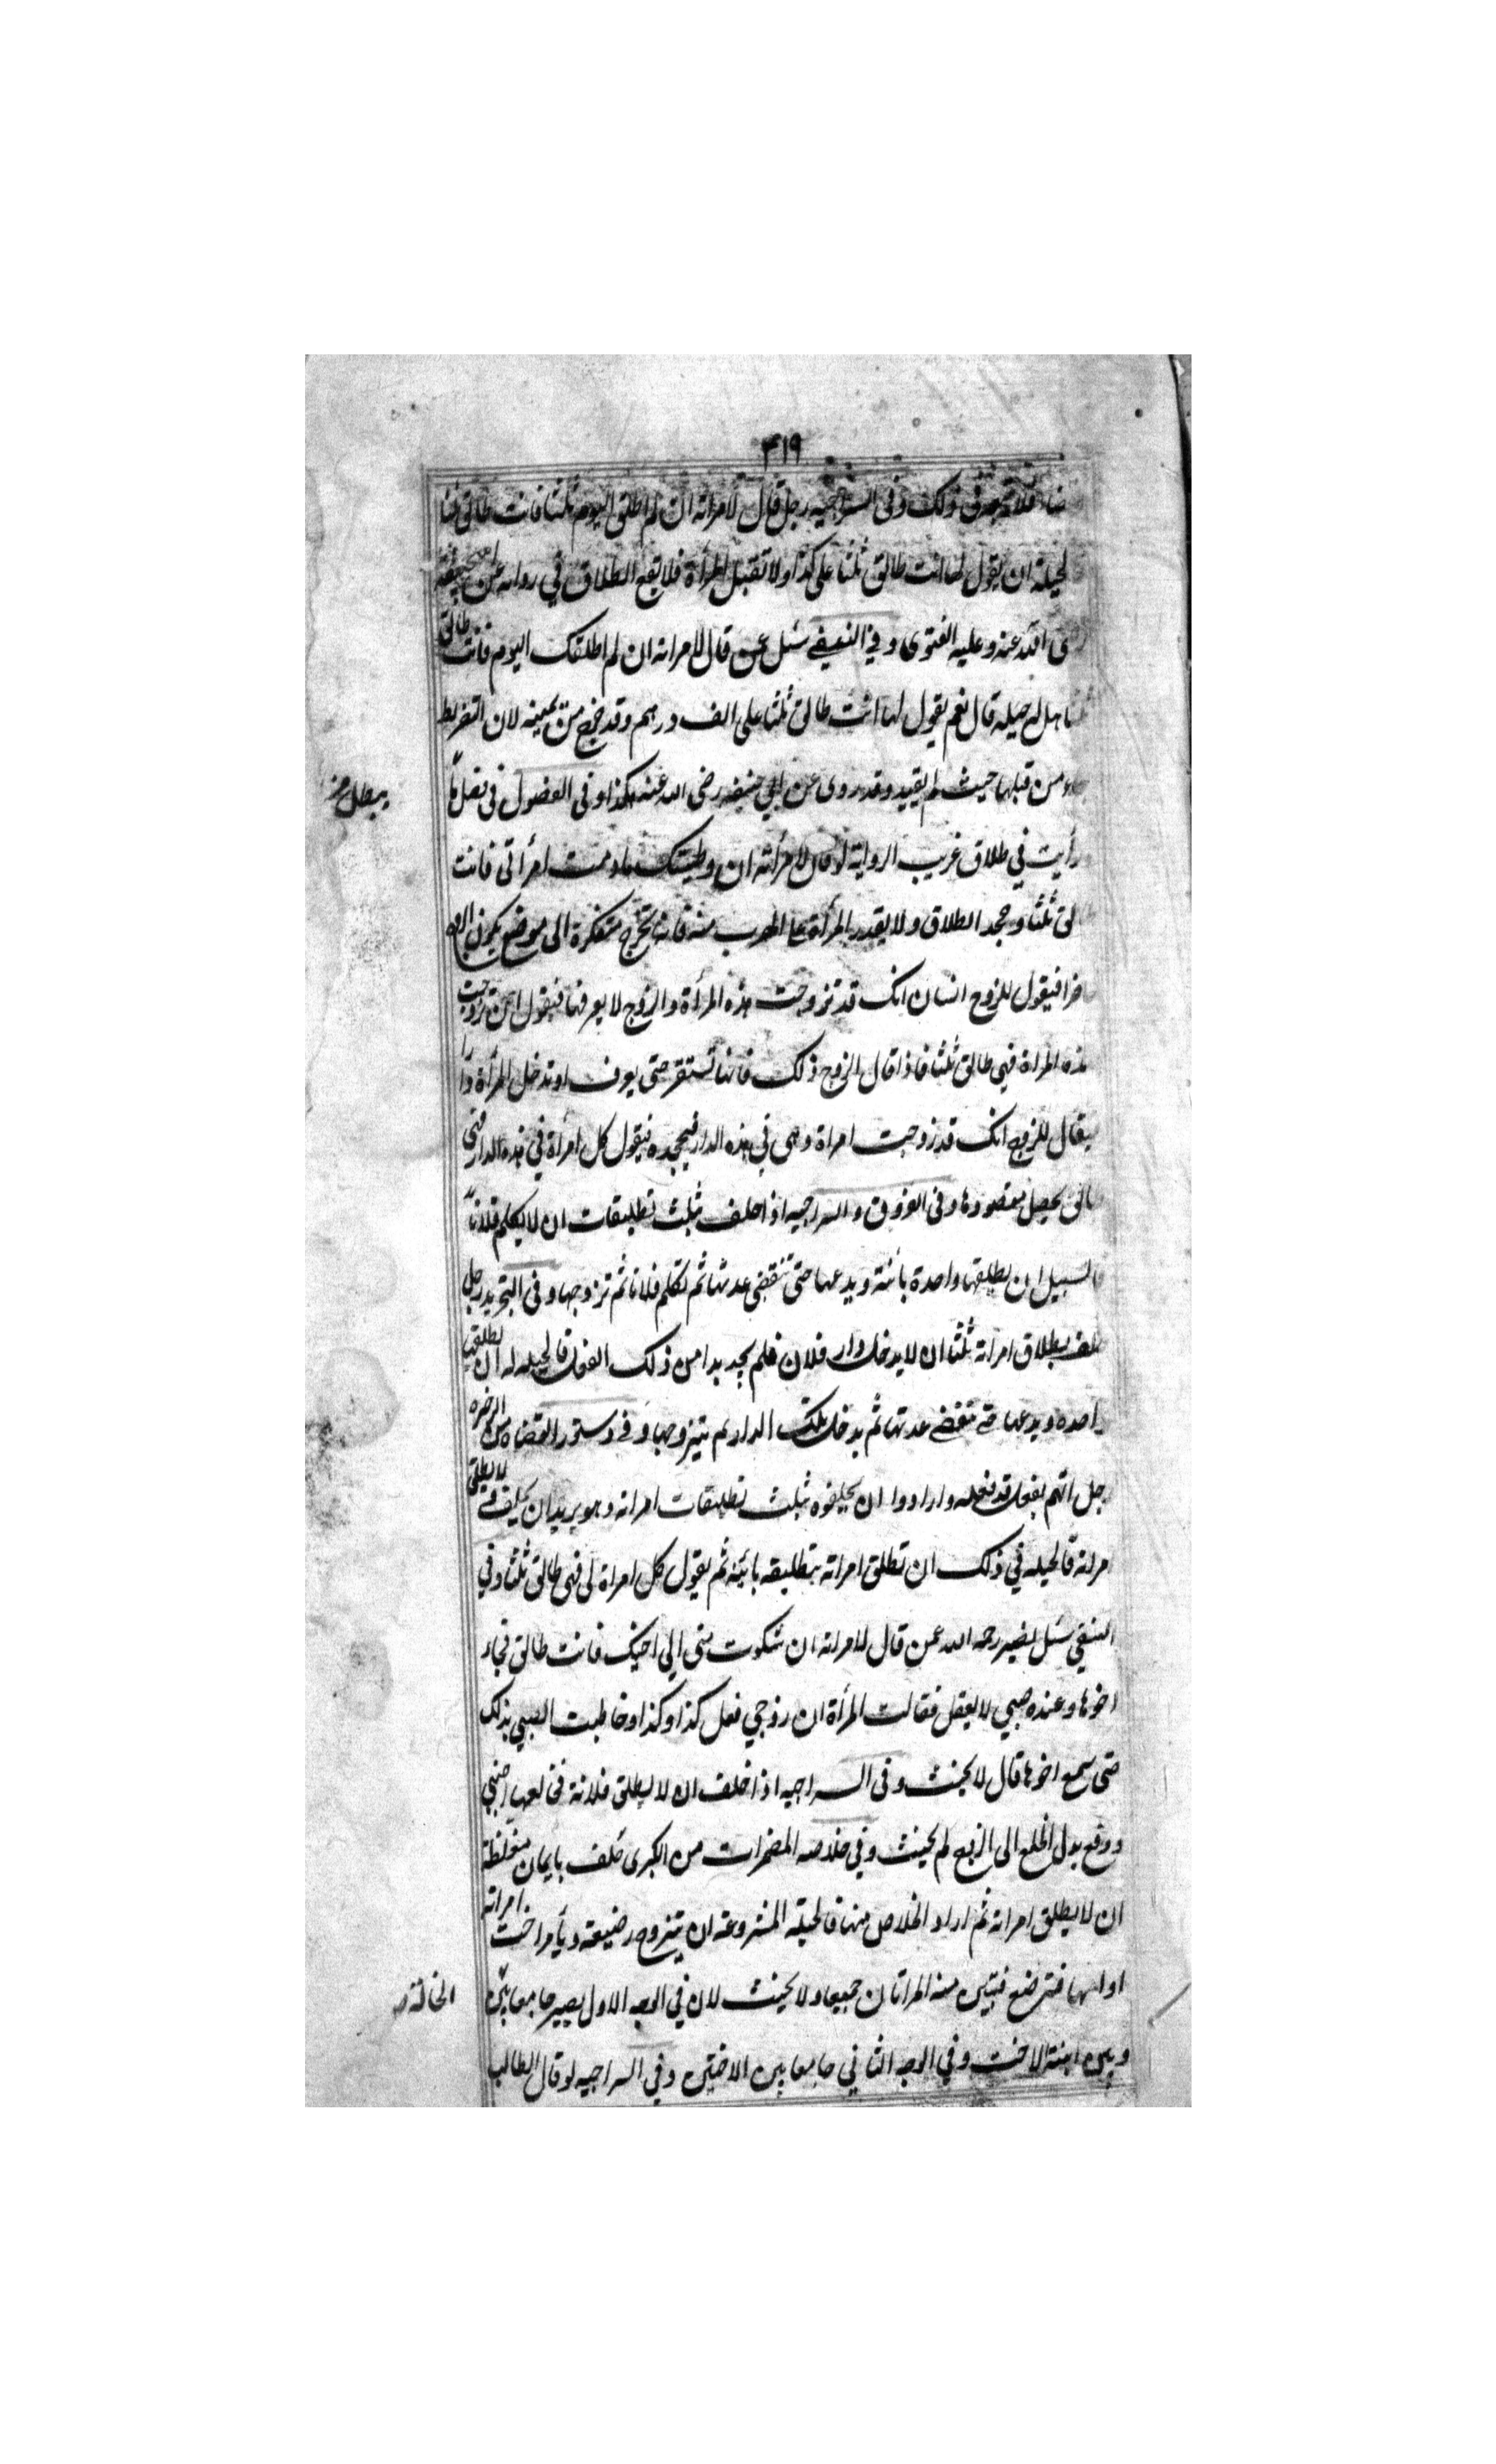 ٣١٩
فلا يصدق في ذلك وفي السراجيه رجل قال لامراته ان لم اطلق اليوم ثلثا فانت طالق ثلثا
لحيلة ان يقول لها انت طالق ثلثا على كذا ولا تقبل المرأة فلا يقع الطلاق في روايه عن ابي حنيفة
رضى الله عنه وعليه الفتوى وفي النسفي سئل عمن قال لامراته ان لم اطلقك اليوم فانت طالق
ثلثا هل له حيله قال نعم يقول لها انت طالق ثلثا على الف درهم وقد خرج من يمينه لان التفريط
جاء من قبلها حيث لم يقيد وقد روى عن ابي حنيفه رضى الله عنه هكذا وفي الفضول في فصل ما
يبطل من
رأيت في طلاق غريب الرواية لو قال لامرأته ان وطيتك مادمت امرأتى فانت
لق ثلثا وجحد الطلاق ولا يقدر المرأة على الهرب منه فانه تخرج متنكرة الى موضع يكون الزوج
ضرا فيقول للزوج انسان انك قد تزوجت هذه المرأة والزوج لا يعرفها فيقول ان تزوجت
هذه المراة فهي طالق ثلثا فاذا قال الزوج ذلك فانها تستقر حتى يعرف او تدخل المرأة دارا
فيقال للزوج انك قد زوجت امراة وهى في هذه الدار فيجحده فيقول كل امرأة في هذه الدار فهى
طالق يحصل مقصودها وفى الفروق والسراجيه اذا حلف بثلث تطليقات ان لا يكلم فلانا
فالسبيل ان يطلقها واحدة بائنة ويدعها حتى تنقضى عدتها ثم تكلم فلانا ثم تزوجها وفى التجريد رجل
حلف بطلاق امراته ثلثا ان لا يدخل دار فلان فلم يجد بدا من ذلك الفعل فالحيله له ان يطلقها
واحده ويدعها حتى تنقضے عدتها ثم يدخل تلك الدار ثم يتزوجها وفے دستور القضاه من الذخيره
رجل اتهم بفعل قد فعله وارادوا ان يحلفوه بثلث تطليقات امراته وهو يريد ان يحلف ولا يطلق
امراته فالحيله في ذلك ان تطلق امراته بتطليقه بائنه ثم يقول كل امراة لى فهى طالق ثلثا وفي
النسفي سئل نصير رحمه الله عمن قال لامراته ان شكوت منى الي اخيك فانت طالق فجاء
اخوها وعنده صبي لا يعقل فقالت المرأة ان زوجي فعل كذا وكذا وخاطبت الصبي بذلك
حتى سمع اخوها قال لا يحنث وفى السراجيه اذا حلف ان لا يطلق فلانة فخالعها اجنبي
ودفع بدل الخلع الى الزوج لم يحنث وفي خلاصه المضمرات من الكبرى حلف بايمان مغلظة
ان لا يطلق امراته ثم اراد الخلاص منها فالحيلة المشروعة ان يتزوج رضيعة ويأمر اخت امراته
او امها فترضع فتبين منه المراتان جميعا ولا يحنث لان في الوجه الاول يصير جامعا بين
الخالة صح
وبين ابنة الاخت وفي الوجه الثاني جامعا بين الاختين وفي السراجيه لو قال الطالب